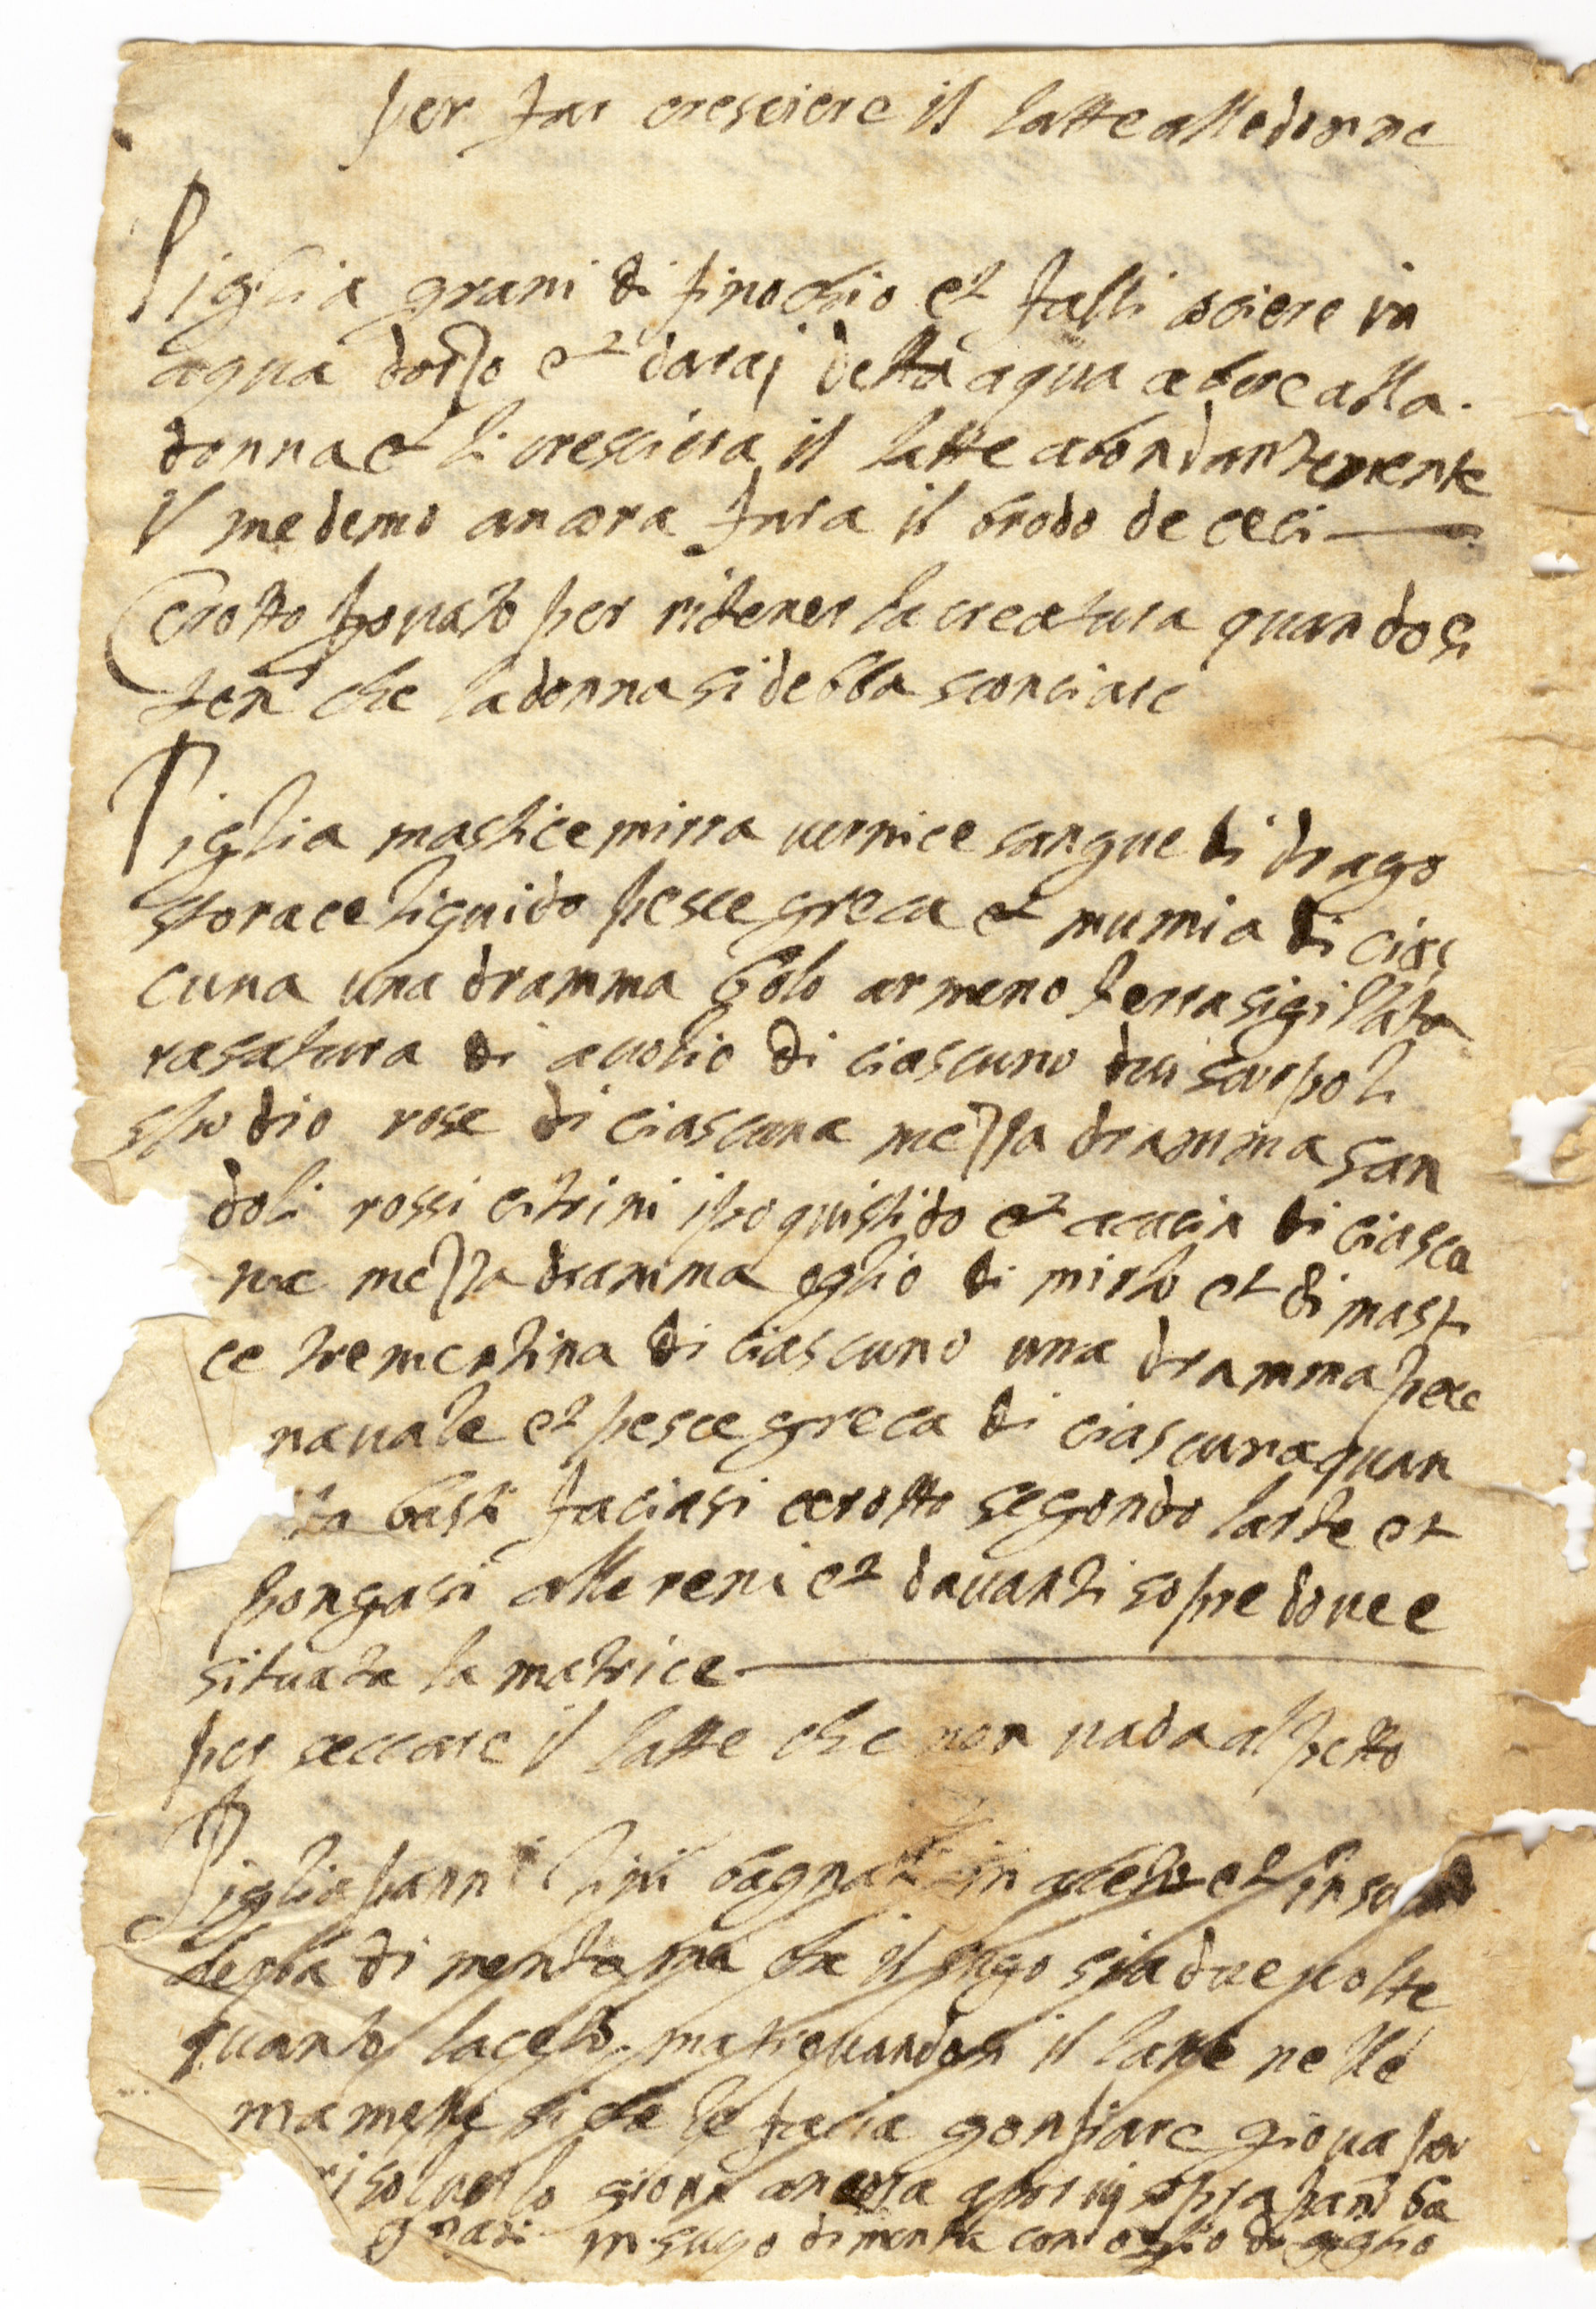 per far cresciere il latte alle donne
Piglia grani di finochio et falli cociere in
aqua dorzo et darai detta aqua a bere alla
donna et li cresciera il latte abondantemente
Il medemo ancora fara il brodo de ceci
Cerotto prouato per ritener la creatura quando si
tem che la donna si debba sconciare
Piglia mastice mirra uernice sangue di drago
storace liquido pesce greca et mumia di cias
cuna una dramma bolo armeno terra sigillata
rasatura di auolio di ciascuno dui scrupoli
spodio rose di ciascuna mezza dramma san
doli rossi citrini ipoquistido et acacia di ciascu
na mezza dramma oglio di mirto et di masti
ce trementina di ciascuno una dramma pece
nauale et pesce greca di ciascuna quan
to basti faciasi cerotto segondo larte et
pongasi alle reni et dauanti sopre doue e
situata la matrice
per seccare il latte che non uada al petto
Piglia panni lini bagnati in aceto et in sugo
depta di menta ma che il sugo sia due uolte
quanto laceto ma trouandosi il latte nelle
mamelle si che le facia gonfiare gioua per
risoluerlo gioua ancora a poruj sopra panni ba
gnati in sugo di menta con oglio di giglio